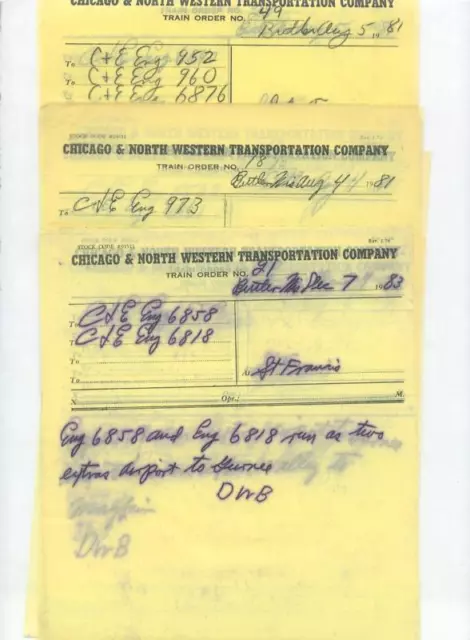 CHICAGO & NORTH WESTERN TRANSPORTATION COMPANY
TRAIN ORDER NO. 49
Butler Aug 5 1981
To C+E Eng 952
C+E Eng 960
C+E Eng 6876
CHICAGO & NORTH WESTERN TRANSPORTATION COMPANY
TRAIN ORDER NO. 18
Butler Wis Aug 4 1981
To C+E Eng 973
CHICAGO & NORTH WESTERN TRANSPORTATION COMPANY
TRAIN ORDER NO. 21
Butler Wis Dec 7 1983
To C+E Eng 6858
To C+E Eng 6818
To
To
At St Francis
X
Opr.
M
Eng 6858 and Eng 6818 run as two
extras airport to Gurnee
DWB
DWB